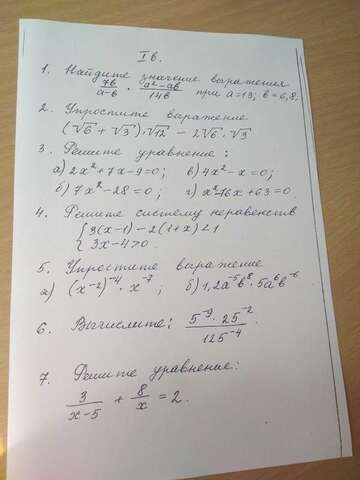 I в.
1. Найдите значение выражения
7в/а-в · а²-ав/14в при а=13; в=6,8.
2. Упростите выражение
(√6 + √3)·√12 - 2√6·√3
3. Решите уравнение:
а) 2x²+7x-9=0; в) 4x²-x=0;
б) 7x²-28=0; г) x²-16x+63=0.
4. Решите систему неравенств
{3(x-1)-2(1+x)<1
3x-4>0.
5. Упростите выражение
а) (x⁻²)⁻⁴·x⁻⁷; б) 1,2а⁻⁵в⁸·5а⁶в⁻⁶
6. Вычислите: 5⁻⁹·25⁻²/125⁻⁴.
7. Решите уравнение:
3/x-5 + 8/x = 2.